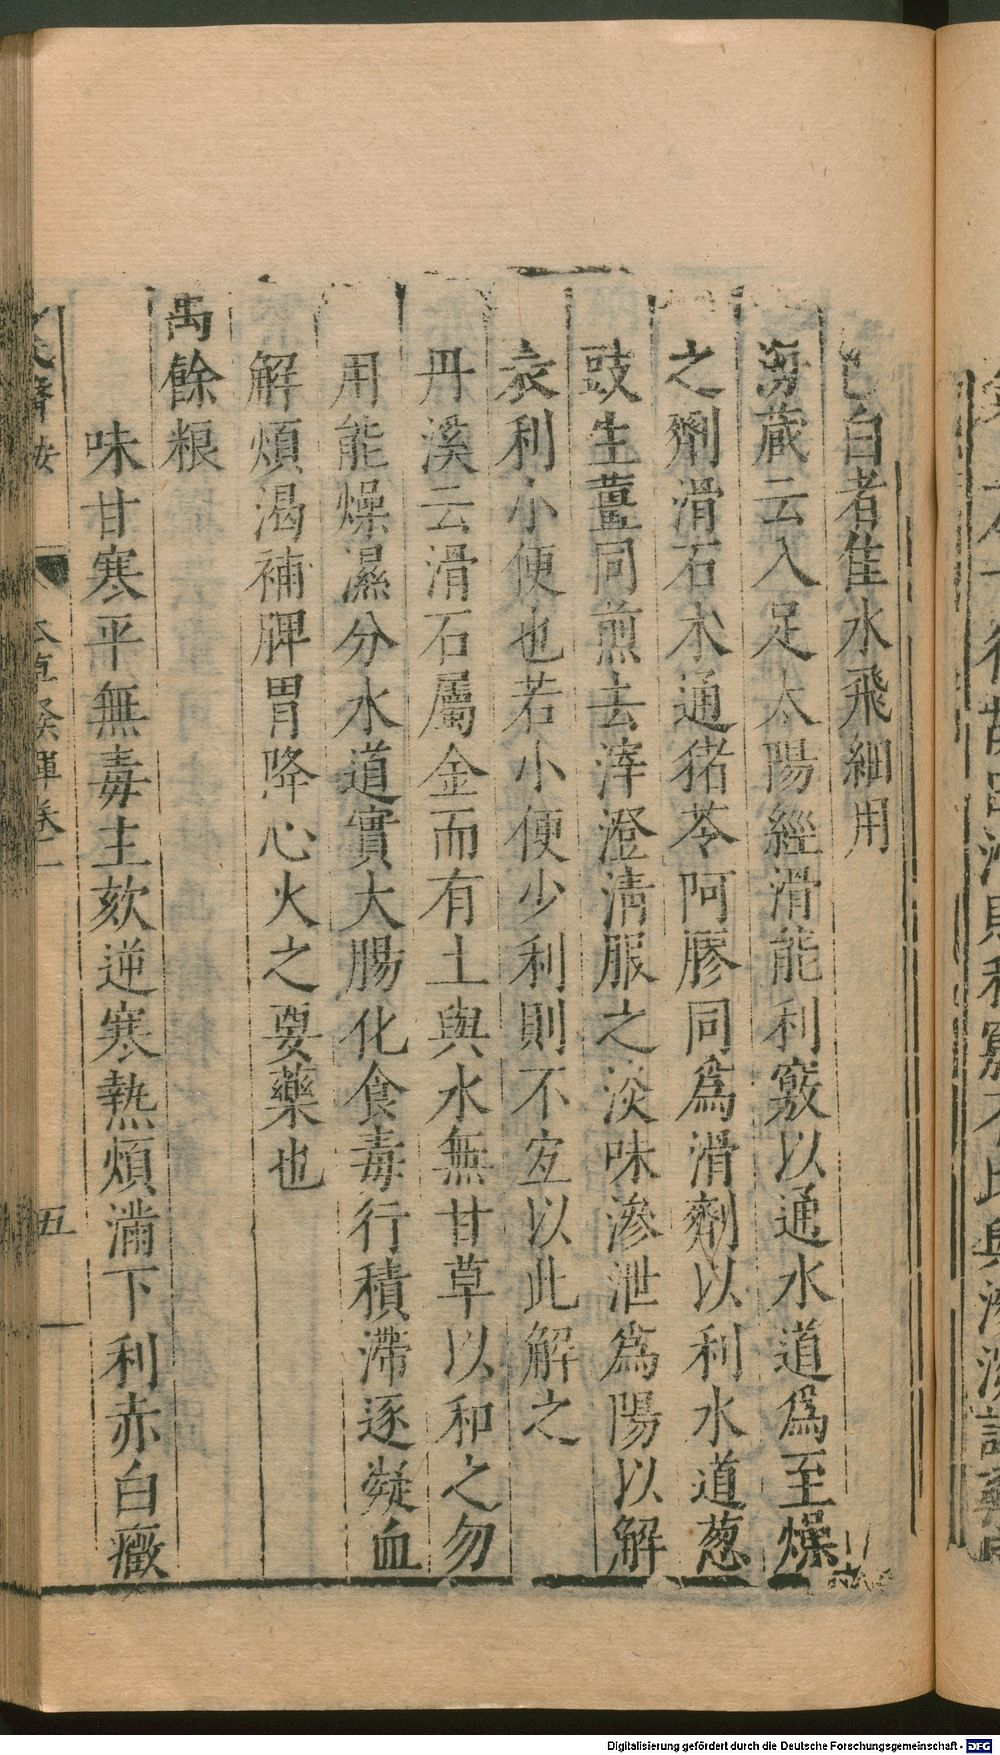 色白者隹水飛細用
海蔵云入足太陽經滑能利竅以通水道爲至燥
之劑滑石木通猪苓阿膠同爲滑劑以利水道葱
豉生薑同煎去滓澄淸服之淡味滲泄爲陽以解
表利小便也若小便少利則不宐以此解之
丹溪云滑石屬金而有土與水無甘草以和之勿
用能燥濕分水道實大腸化食毒行積滯逐凝血
解煩渴補脾胃降心火之要藥也
禹餘粮
味甘寒平無毒主欬逆寒熱煩滿下利赤白癥
本草發揮卷二
五
Digitalisierung gefördert durch die Deutsche Forschungsgemeinschaft - DFG